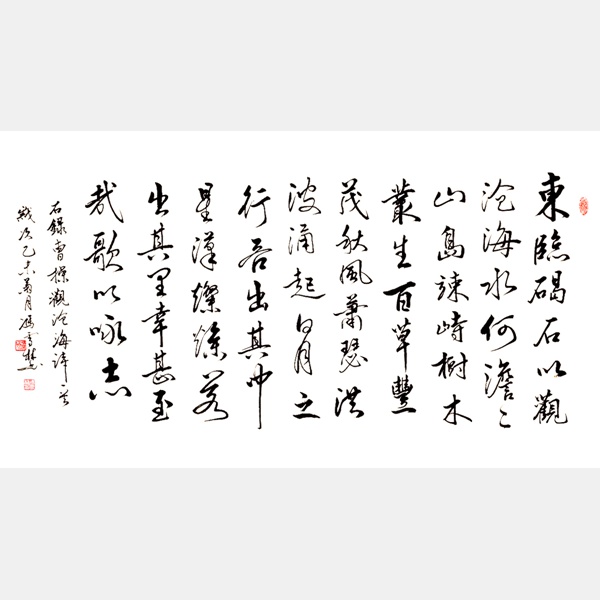 東臨碣石以觀
沧海水何澹〻
山島竦峙樹木
叢生百草豐
茂秋風蕭瑟洪
波涌起日月之
行若出其中
星漢燦爛若
出其里幸甚至
哉歌以咏志
右錄曹操觀沧海詩一首
歲次乙未